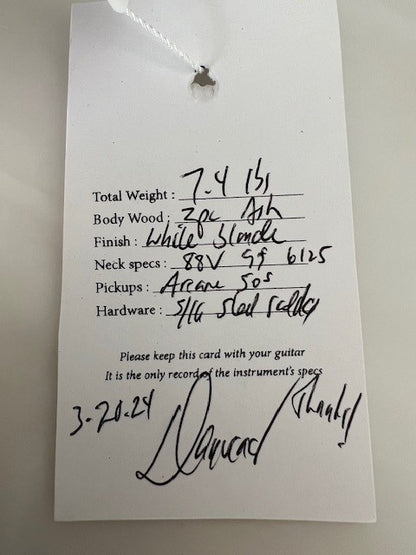 Total Weight : 7.4 lbs
Body Wood : 2pc Ash
Finish : White blonde
Neck specs : 88V 9.5 6125
Pickups : Arcane 50s
Hardware : 5/16 steel saddles
Please keep this card with your guitar
It is the only record of the instrument's specs
3-20-24
Thanks!